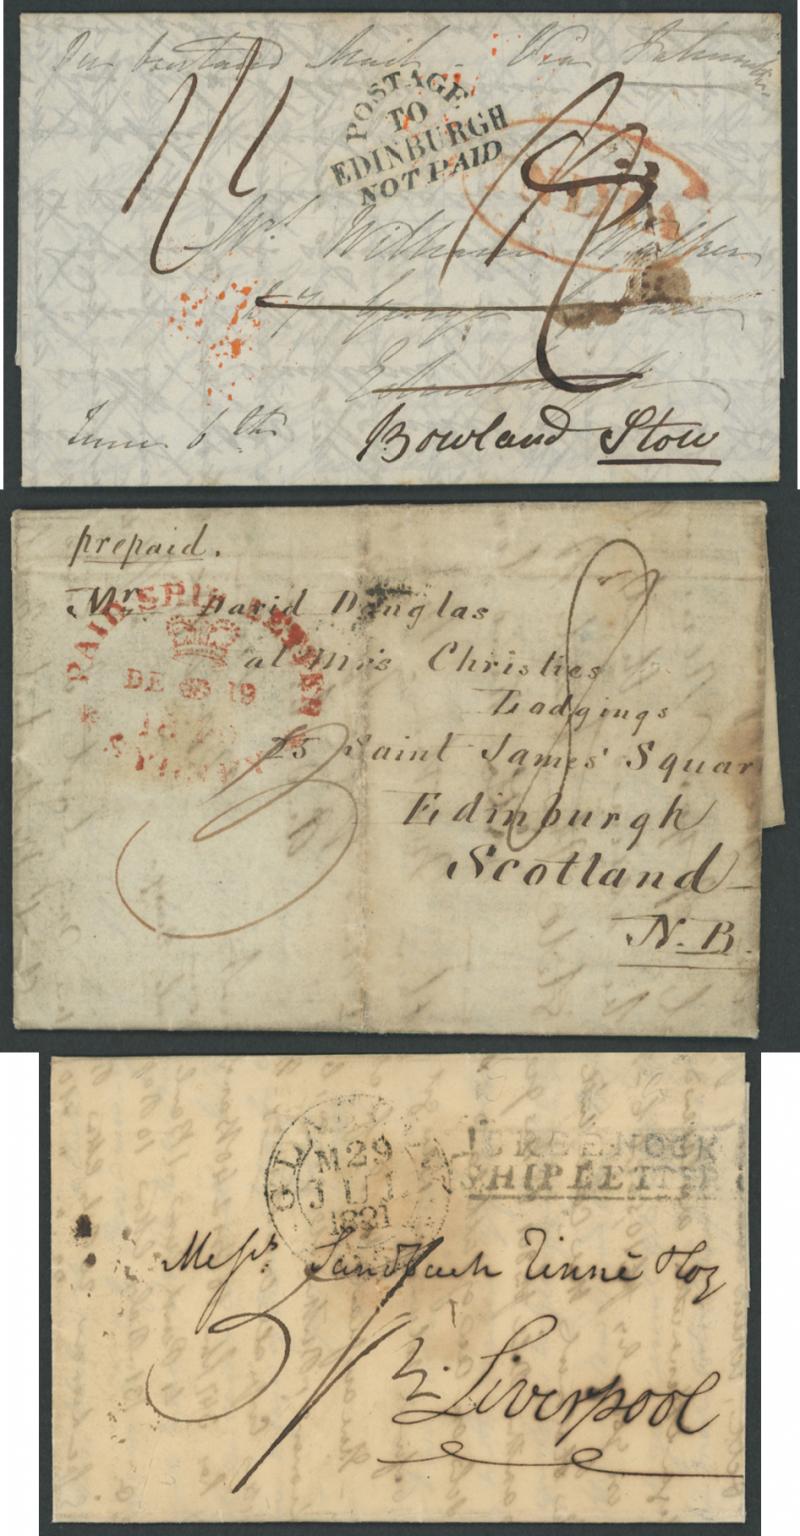 Per Overland Mail Via Falmouth
POSTAGE
TO
EDINBURGH
NOT PAID
INDIA
Mrs William Walker
George
Edinburgh
June 6th
Bowland Stow
prepaid.
Mr David Douglas
at Mrs Christies
Lodgings
25 Saint James' Squar
Edinburgh
Scotland
N.B.
PAID SHIP LETTER
DE 19
SYDNEY
GREENOCK
SHIP LETTER
M29
JUL
1821
Messrs Sandbach Tinné & Co
Liverpool